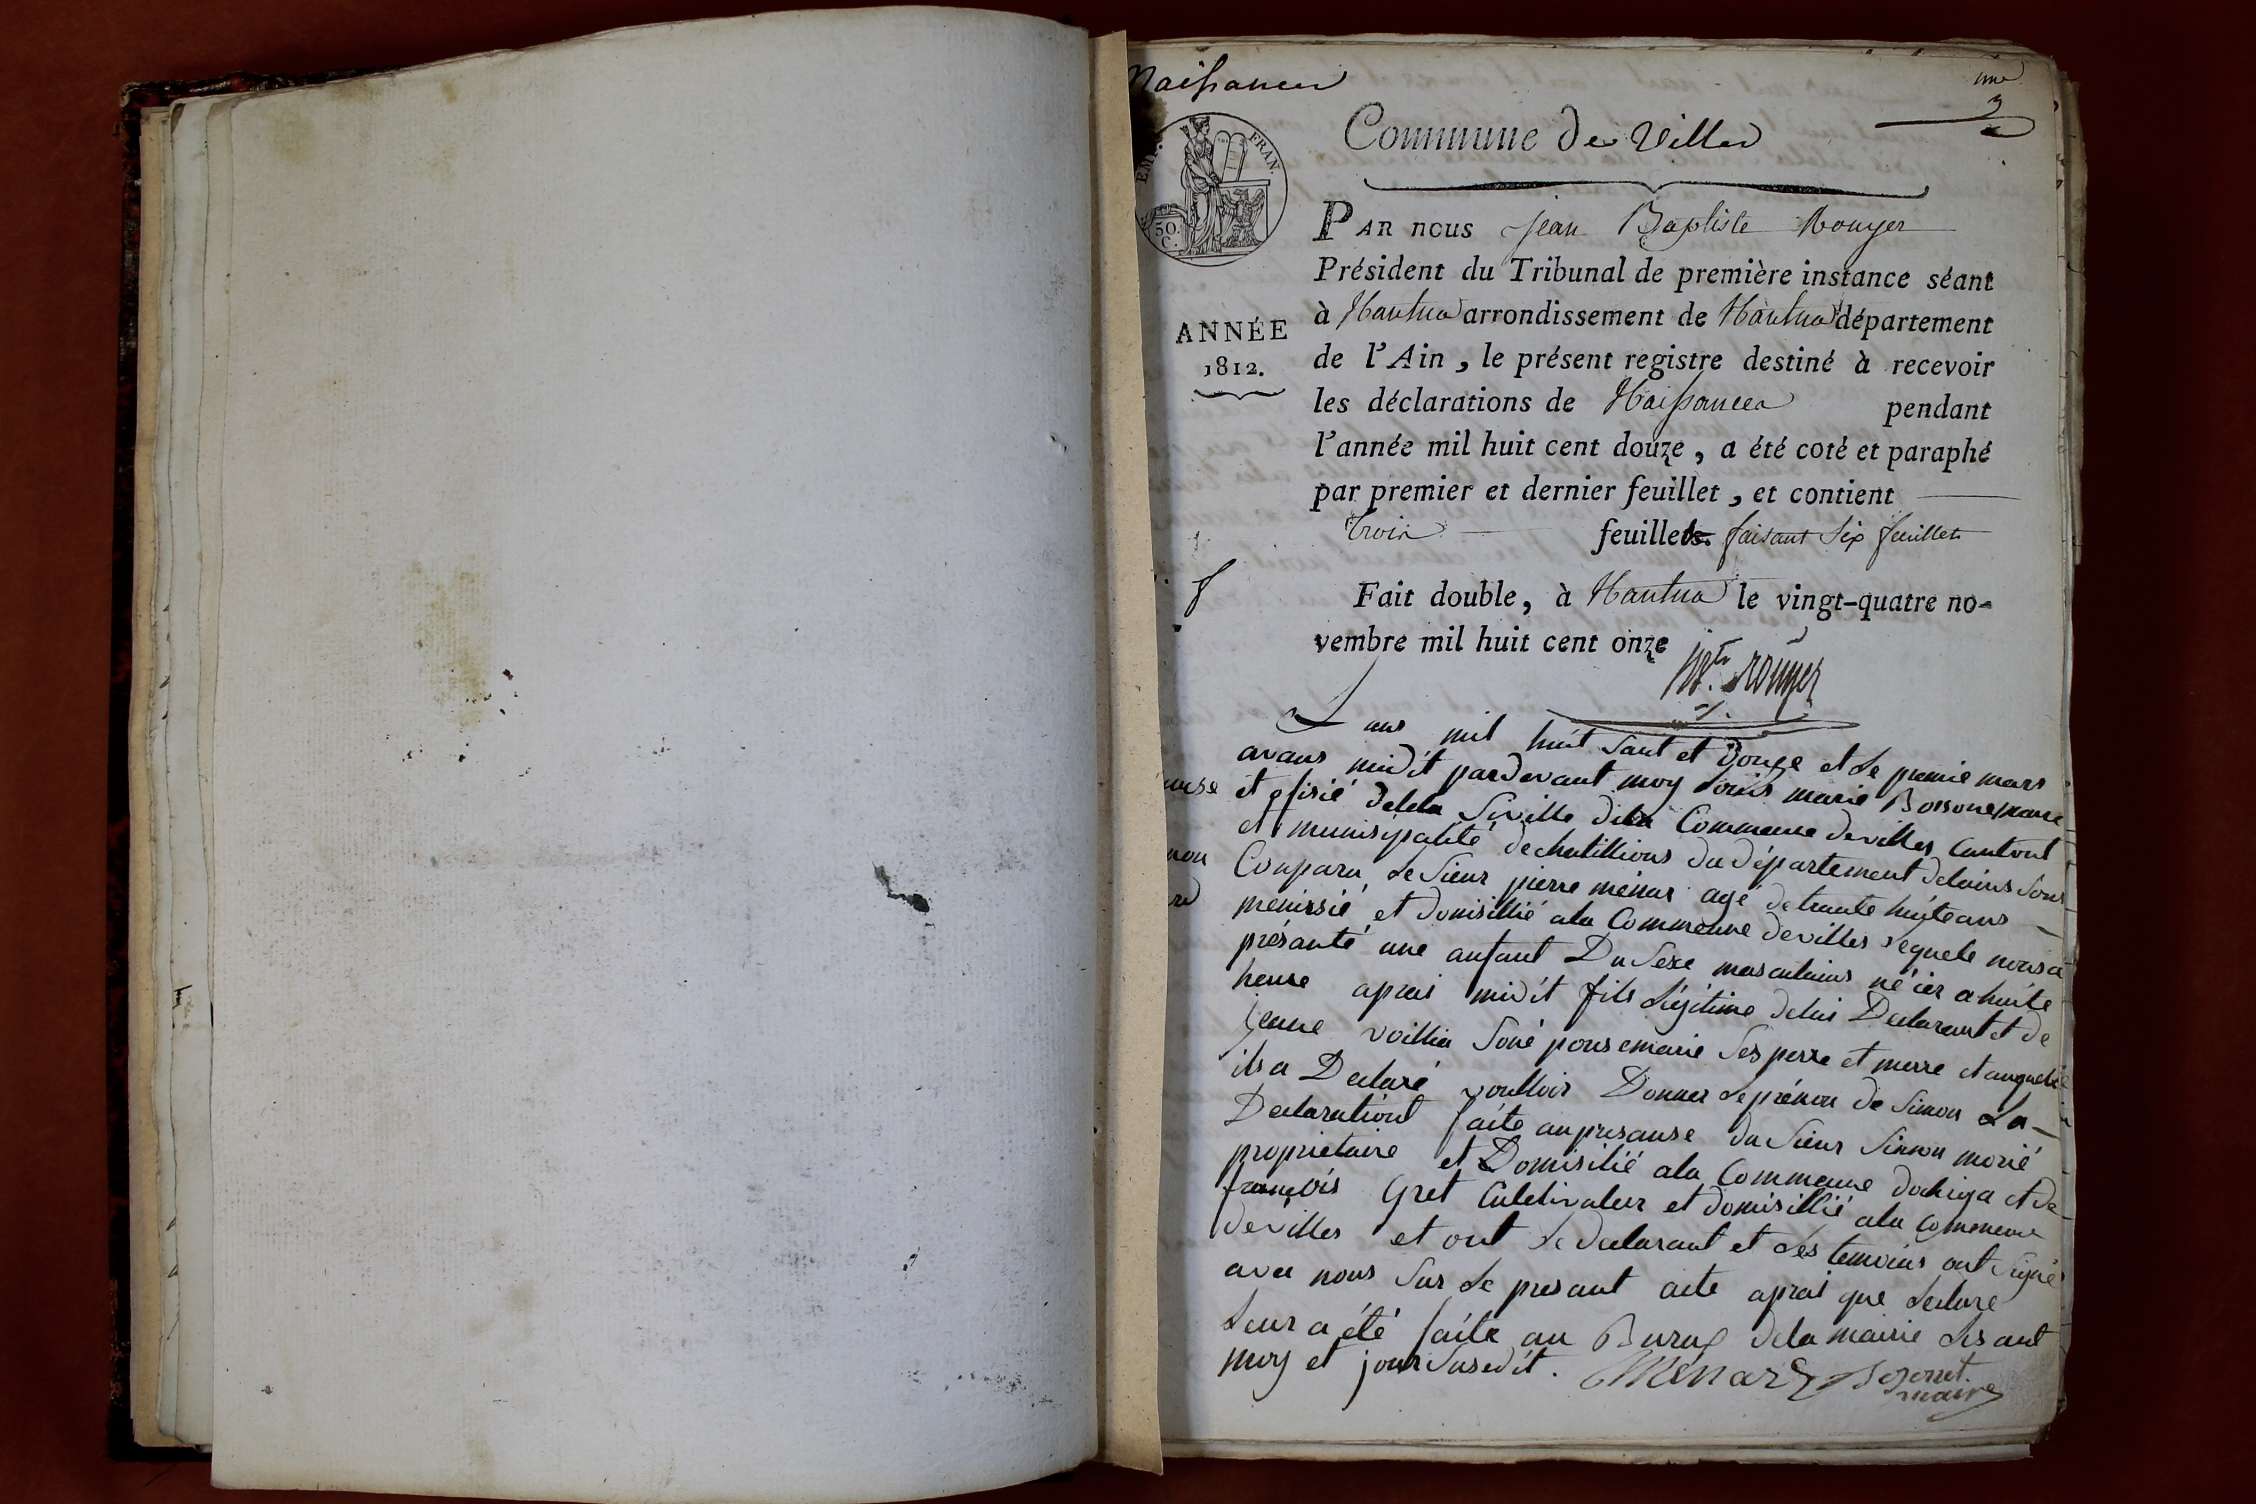 Naissances
une
3
EMP. FRAN.
50.
C.
Commune de Villes
PAR NOUS Jean Baptiste Rouyer
Président du Tribunal de première instance séant
à Nantua arrondissement de Nantua département
ANNÉE
1812.
de l'Ain, le présent registre destiné à recevoir
les déclarations de Naissances pendant
l'année mil huit cent douze, a été coté et paraphé
par premier et dernier feuillet, et contient
trois feuillets. faisant six feuillets
Fait double, à Nantua le vingt-quatre no-
vembre mil huit cent onze
Bte. Rouyer
L ans mil huit sant et Douze et le premie mars
avans midit pardevant moy Louis marie Bossonet maire
et ofisié delda siville dela Commeune devilles Cantont
et munisipalité dechatillions du département delains sons
Conparu le sieur pierre ménar agé detrante huiteans
menissié et domisillié ala Commeune devilles lequele nous a
présanté une anfant Du sexe masculains né ier a huite
heure aprai midit fils Légitime delui Declarant et de
jeane voillia soné pousemarie ses perre et merre et auquele
ils a Declaré voulloir Donner le prénon de simon La
Declarationt faite anpresanse du sieur simon morié
proprietaire et Domisilié ala Commeune dochiga et de
françois Gret Culdivateur et domisillié ala Commeune
devilles et ont le declarant et les temoins ont signé
avec nous sur le presant acte aprai que lecture
Leur a été faite au Buraux dela mairie les ant
moy et jour susedit. Menard Bosonet
maire